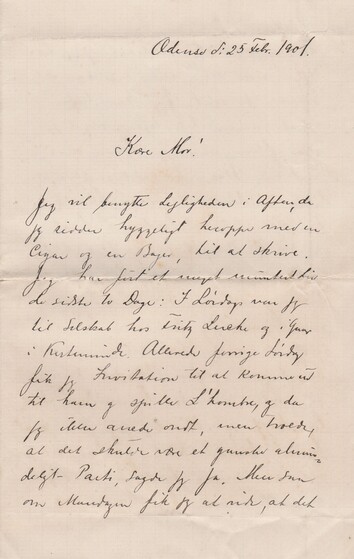 Odense d: 25 Febr. 1901.
Kære Mor!
Jeg vil benytte Lejligheden i Aften, da
jeg sidder hyggeligt heroppe med en
Cigar og en Bajer, til at skrive.
Jeg har ført et meget muntert Liv
de sidste to Dage: I Lørdags var jeg
til Selskab hos Fritz Lerche og i Gaar
i Kerteminde. Allerede forrige Lørdag
fik jeg Invitation til at komme
til ham og spille L'hombre, og da
jeg ikke anede ondt, men troede,
at det skulde være et ganske almin-
deligt Parti, sagde jeg ja. Men saa
om Mandagen fik jeg at vide, at det